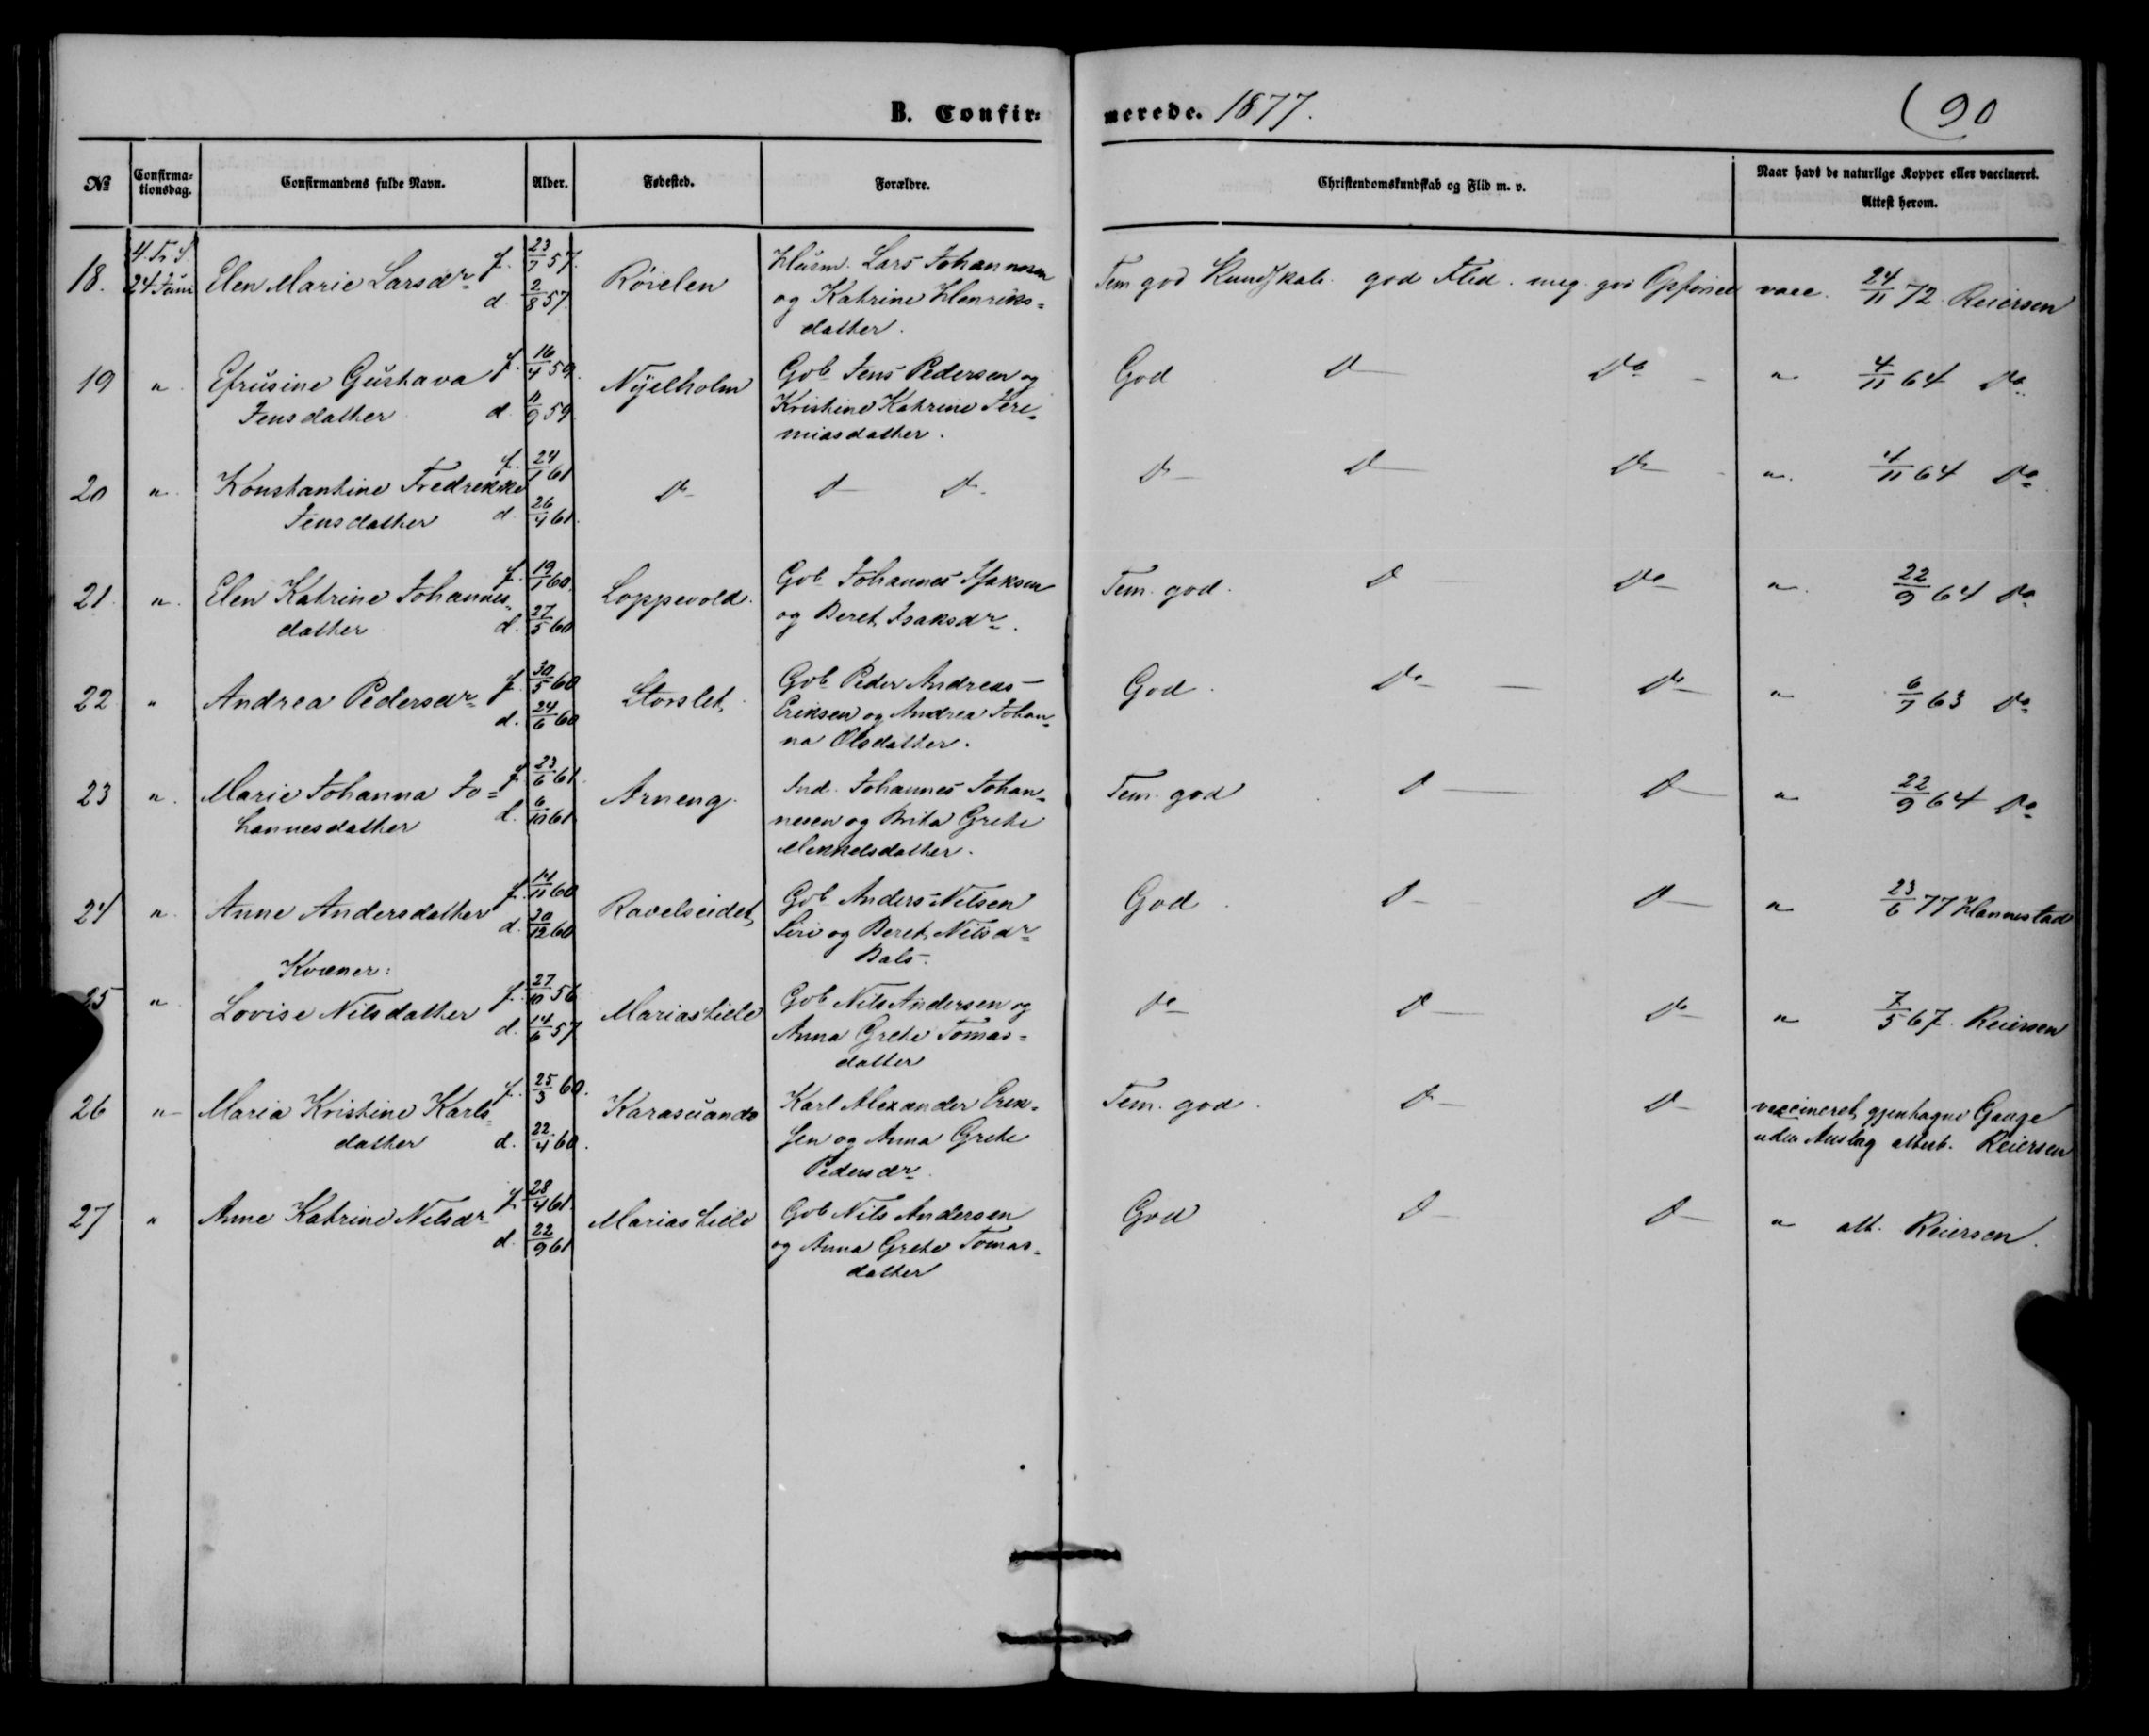 B. Confir-
merede. 1877.
90
№
Confirma-
tionsdag.
Confirmandens fulde Navn.
Alder.
Fødested.
Forældre.
Christendomskundskab og Flid m. v.
Naar havt de naturlige Kopper eller vaccineret.
Attest herom.
18. 4. Tr. S. 24 Juni Elen Marie Larsdr f. 23/7 57. d. 2/8 57. Røielen
Husm. Lars Johannesen
og Katrine Henriks-
datter.
Tem. god Kundskab. god Flid. meg. god Opførsel vacc. 24/11 72 Reiersen
19 " Efrusine Gustava f. 16/4 59.
Jensdatter d. 11/9 59.
Nyelholm
Gob Jens Pedersen og
Kristine Katrine Jere-
miasdatter.
God D Do " 4/11 64 Do
20 " Konstantine Fredrikke f. 24/1 61
Jensdatter d. 26/4 61.
Do D Do
Do D Do " 4/11 64 Do
21. " Elen Katrine Johannes- f. 19/1 60.
datter d. 27/5 60
Loppevold.
Gob Johannes Isaksen
og Beret Isaksdr.
Tem. god. D Do " 22/9 64 Do
22 " Andrea Pedersdr f. 30/5 60
d. 24/6 60
Storslet.
Gob Peder Andreas
Eriksen og Andrea Johan-
na Olsdatter.
God. Do Do " 6/7 63 Do
23 " Marie Johanna Jo- f. 23/6 61.
hannesdatter d. 6/10 61
Arneng.
Ind. Johannes Johan-
nesen og Brita Grete
Mikkelsdatter.
Tem. god D D " 22/9 64 Do
24 " Anne Andersdatter f. 14/11 60
d. 20/12 60
Ravelseidet
Gob Anders Nilsen
Siri og Beret Nilsdr
Bals.
God. D D " 23/6 77 Hannestad
Kvæner:
25 " Lovise Nilsdatter f. 27/10 56
d. 14/6 57
Mariashiele
Gob Nils Andersen og
Anna Grete Tomas-
datter
Do D Do " 7/5 67. Reiersen
26 " Maria Kristine Karls- f. 25/3 60.
datter d. 22/4 60.
Karasuando
Karl Alexander Erik-
sen og Anna Grete
Pedersdr.
Tem. god. D D
vaccineret gjentagne Gange
uden Anslag attest. Reiersen
27 " Anne Katrine Nilsdr f. 28/4 61.
d. 22/9 61
Mariashiele
Gob Nils Andersen
og Anna Grete Tomas-
datter
God D D " att. Reiersen.